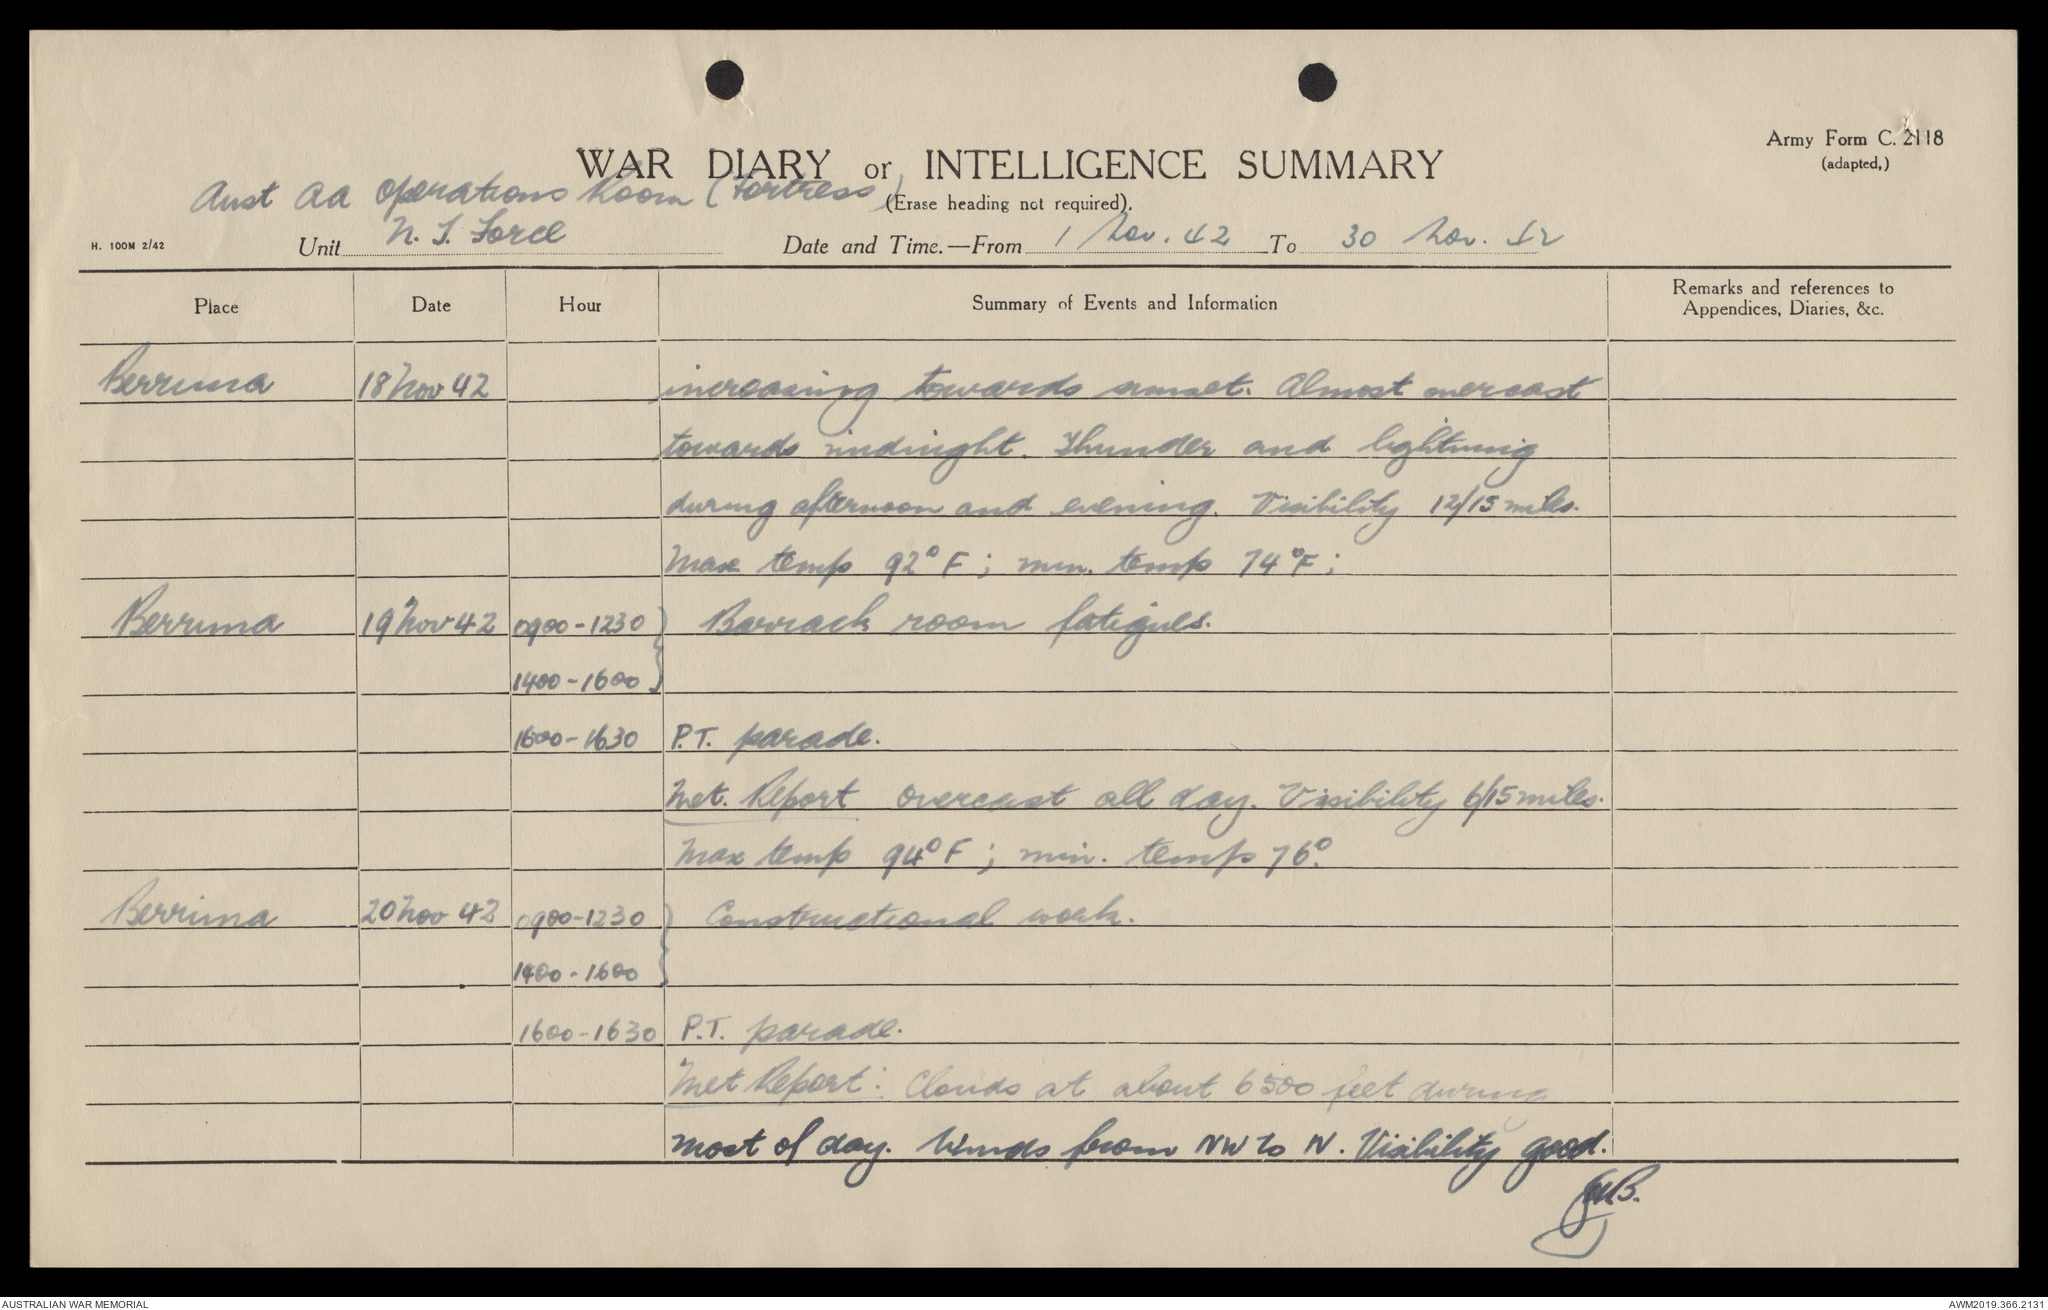 Army Form C. 2118
(adapted,)
WAR DIARY or INTELLIGENCE SUMMARY
Aust AA Operations Room (Fortress)
(Erase heading not required).
H. 100M 2/42
Unit N. T. Force Date and Time.—From 1 Nov. 42 To 30 Nov. 42
Place Date Hour Summary of Events and Information Remarks and references to
Appendices, Diaries, &c.
Berrima 18 Nov 42 increasing towards sunset. Almost overcast
towards midnight. Thunder and lightning
during afternoon and evening. Visibility 12/15 miles.
Max temp 92° F; min. temp 74°F;
Berrima 19 Nov 42 0900-1230 } Barrack room fatigues.
1400-1600
1600-1630 P.T. parade.
Met. Report overcast all day. Visibility 6/15 miles.
Max temp 94° F; min. temp 76°.
Berrima 20 Nov 42 0900-1230 } Constructional work.
1400-1600
1600-1630 P.T. parade.
Met Report: Clouds at about 6500 feet during
most of day. Winds from NW to N. Visibility good.
AUSTRALIAN WAR MEMORIAL
AWM2019.366.2131